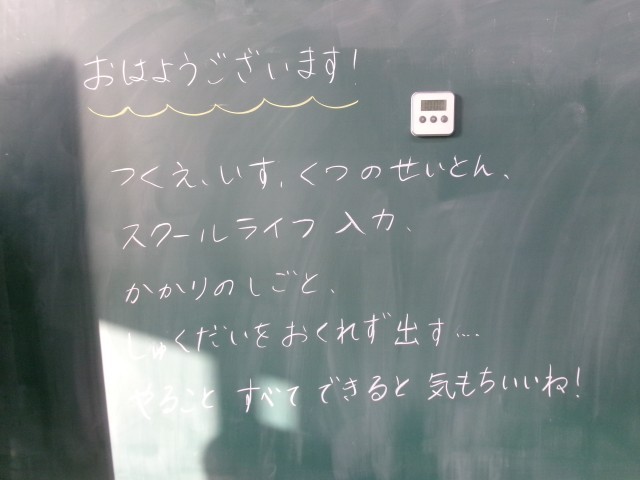 おはようございます!
つくえ、いす、くつのせいとん、
スクールライフ 入力、
かかりのしごと、
しゅくだいをおくれず出す....
やること すべて できると 気もちいいね!